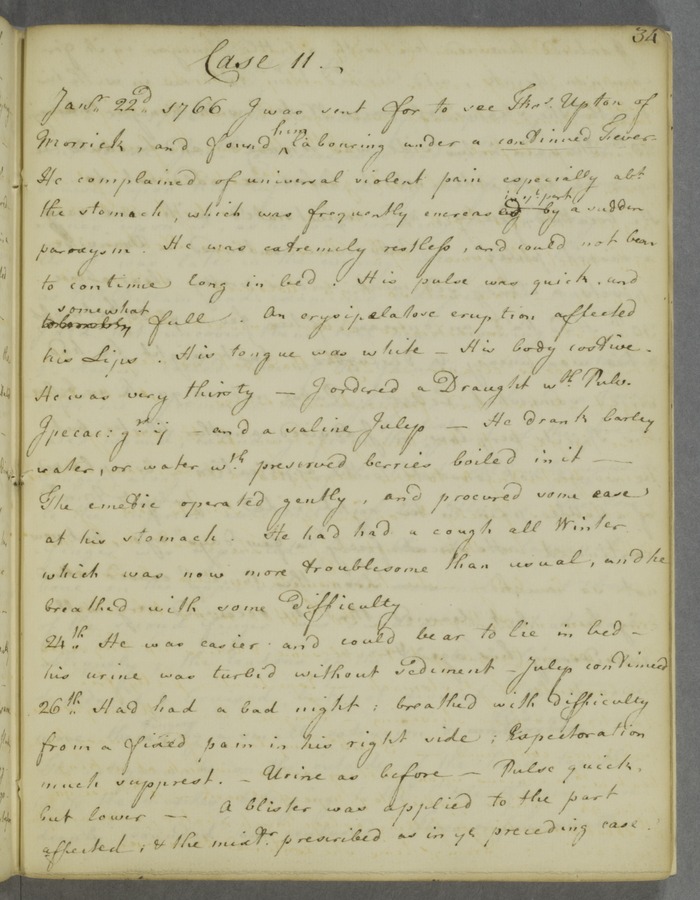 34
Case 11.
Janʸ 22ᵈ 1766 I was sent for to see Thoˢ. Upton of
Morrick, and found him labouring under a continued Fever.
He complained of universal violent pain especially abᵗ
in yᵗ part
the stomach, which was frequently encreas'd by a sudden
paroxysm. He was extremely restless, and could not bear
to continue long in bed. His pulse was quick and
somewhat
full. An erysipelatose eruption affected
his Lips. His tongue was white – His body costive.
He was very thirsty – I ordered a Draught wᵗʰ Pulv.
Ipecac: gʳ ij – and a saline Julep – He drank barley
water, or water wᵗʰ preserved berries boiled in it —
The emetic operated gently, and procured some ease
at his stomach. He had had a cough all Winter
which was now more troublesome than usual, and he
breathed with some difficulty
24ᵗʰ He was easier and could bear to lie in bed –
his urine was turbid without sediment – Julep continued
26ᵗʰ Had had a bad night: breathed with difficulty
from a fixed pain in his right side; Expectoration
much supprest. – Urine as before – Pulse quick,
but lower — A blister was applied to the part
affected; & the mixtʳ prescribed as in yᵉ preceding case.